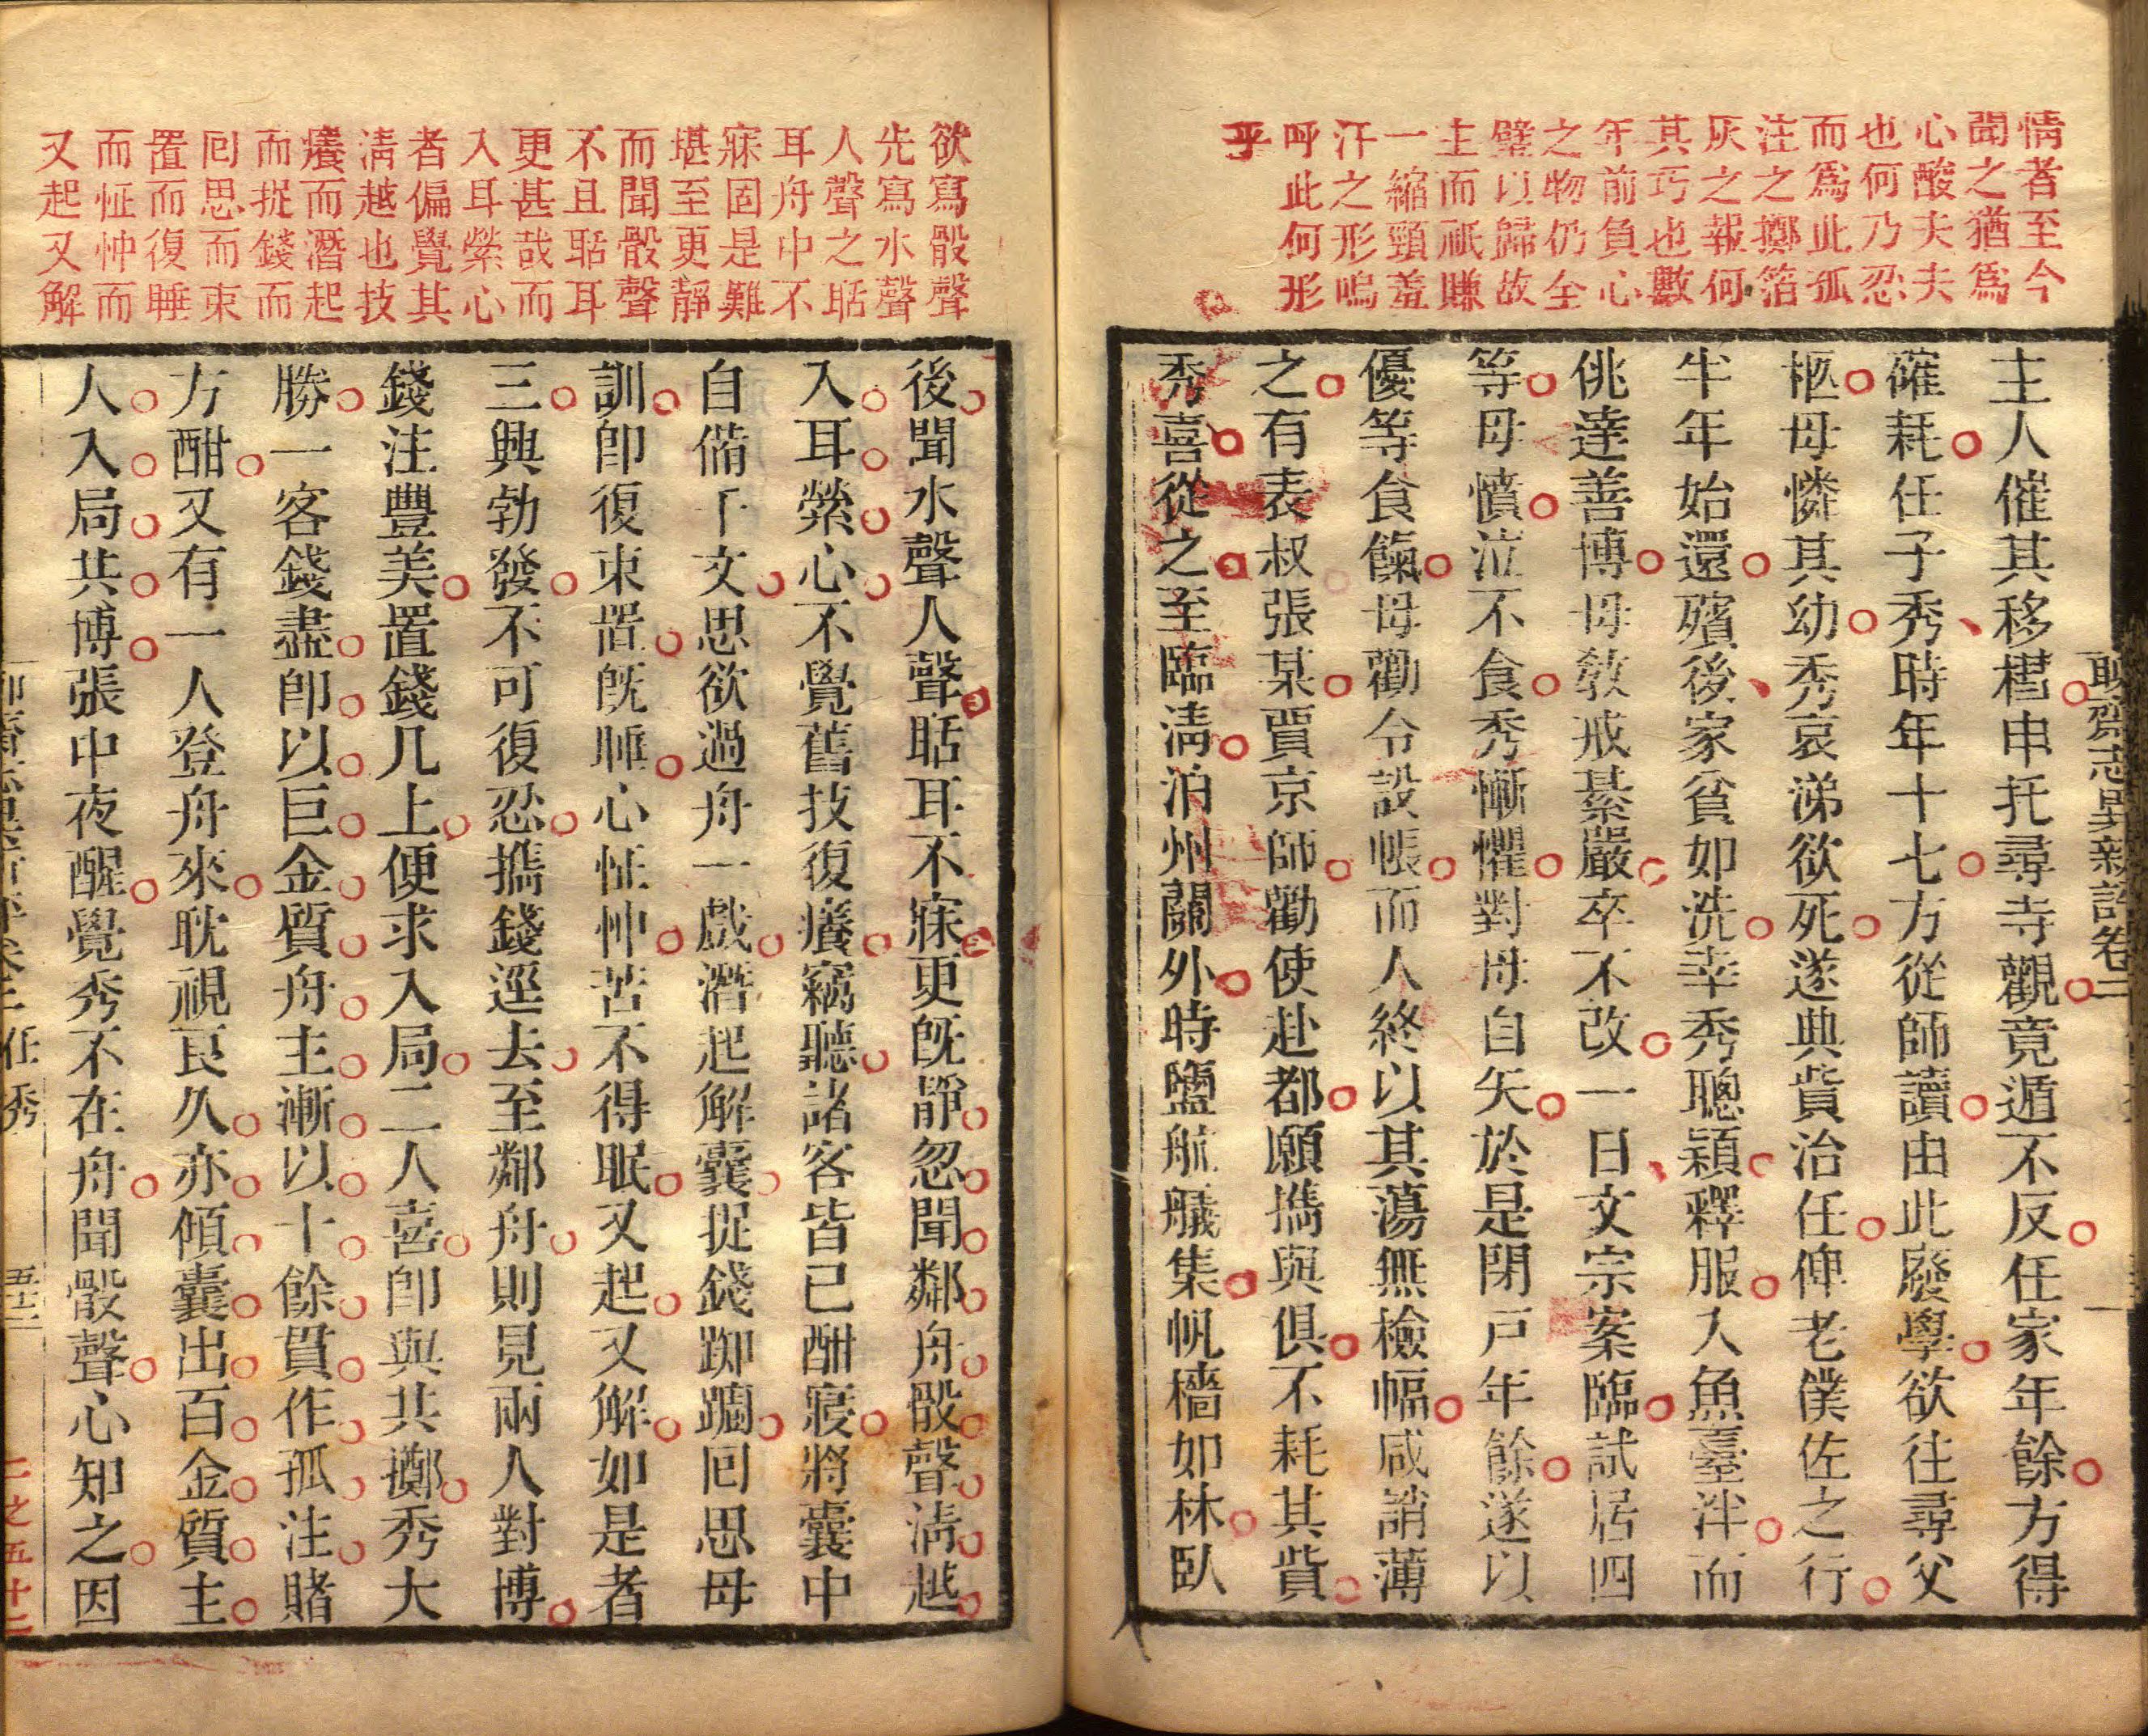 情者至今
聞之猶爲
心酸夫夫
也何乃忍
而爲此孤
注之擲箔
灰之報何
其巧也數
年前負心
之物仍全
璧以歸故
主而祇賺
一縮頸羞
汗之形嗚
呼此何形
乎
主人催其移槥申托尋寺觀竟遁不反任家年餘方得
確耗任子秀時年十七方從師讀由此廢學欲往尋父
柩母憐其幼秀哀涕欲死遂典貲治任俾老僕佐之行
半年始還殯後家貧如洗幸秀聰穎釋服入魚臺泮而
佻達善博母教戒綦嚴卒不改一日文宗案臨試居四
等母憤泣不食秀慚懼對母自矢於是閉戶年餘遂以
優等食餼母勸令設帳而人終以其蕩無檢幅咸誚薄
之有表叔張某賈京師勸使赴都願攜與俱不耗其貲
秀喜從之至臨淸泊州關外時鹽航艤集帆檣如林臥
聊齋志異新評卷二
欲寫骰聲
先寫水聲
人聲之聒
耳舟中不
寐固是難
堪至更靜
而聞骰聲
不且聒耳
更甚哉而
入耳縈心
者偏覺其
淸越也技
癢而潛起
而捉錢而
囘思而束
置而復睡
而怔忡而
又起又解
後聞水聲人聲聒耳不寐更旣靜忽聞鄰舟骰聲淸越
入耳縈心不覺舊技復癢竊聽諸客皆已酣寢將囊中
自備千文思欲過舟一戲潛起解囊捉錢踟躕囘思母
訓卽復束置旣睡心怔忡苦不得眠又起又解如是者
三興勃發不可復忍攜錢逕去至鄰舟則見兩人對博
錢注豐美置錢几上便求入局二人喜卽與共擲秀大
勝一客錢盡卽以巨金質舟主漸以十餘貫作孤注賭
方酣又有一人登舟來耽視良久亦傾囊出百金質主
人入局共博張中夜醒覺秀不在舟聞骰聲心知之因
任秀
五十二
二之五十二